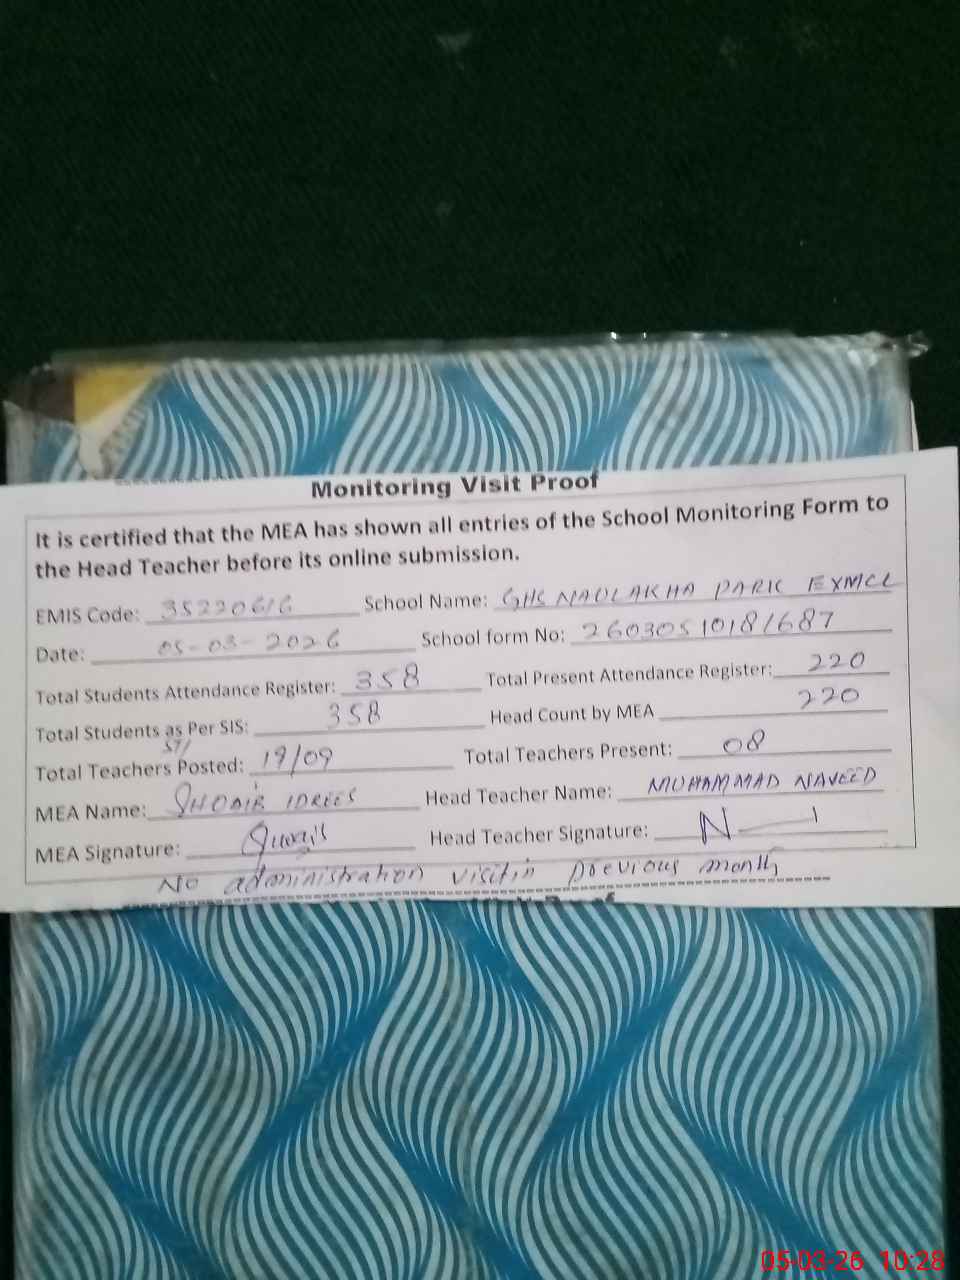 Monitoring Visit Proof
It is certified that the MEA has shown all entries of the School Monitoring Form to
the Head Teacher before its online submission.
EMIS Code: 35220616 School Name: GHS NAULAKHA PARK EXMCL
Date: 05-03-2026 School form No: 26030510181687
Total Students Attendance Register: 358 Total Present Attendance Register: 220
Total Students as Per SIS: 358 Head Count by MEA 220
Total Teachers Posted: 19/09 Total Teachers Present: 08
MEA Name: SHOAIB IDREES Head Teacher Name: MUHAMMAD NAVEED
MEA Signature: Head Teacher Signature: N
No administration visit in previous month
05-03-26 10:28